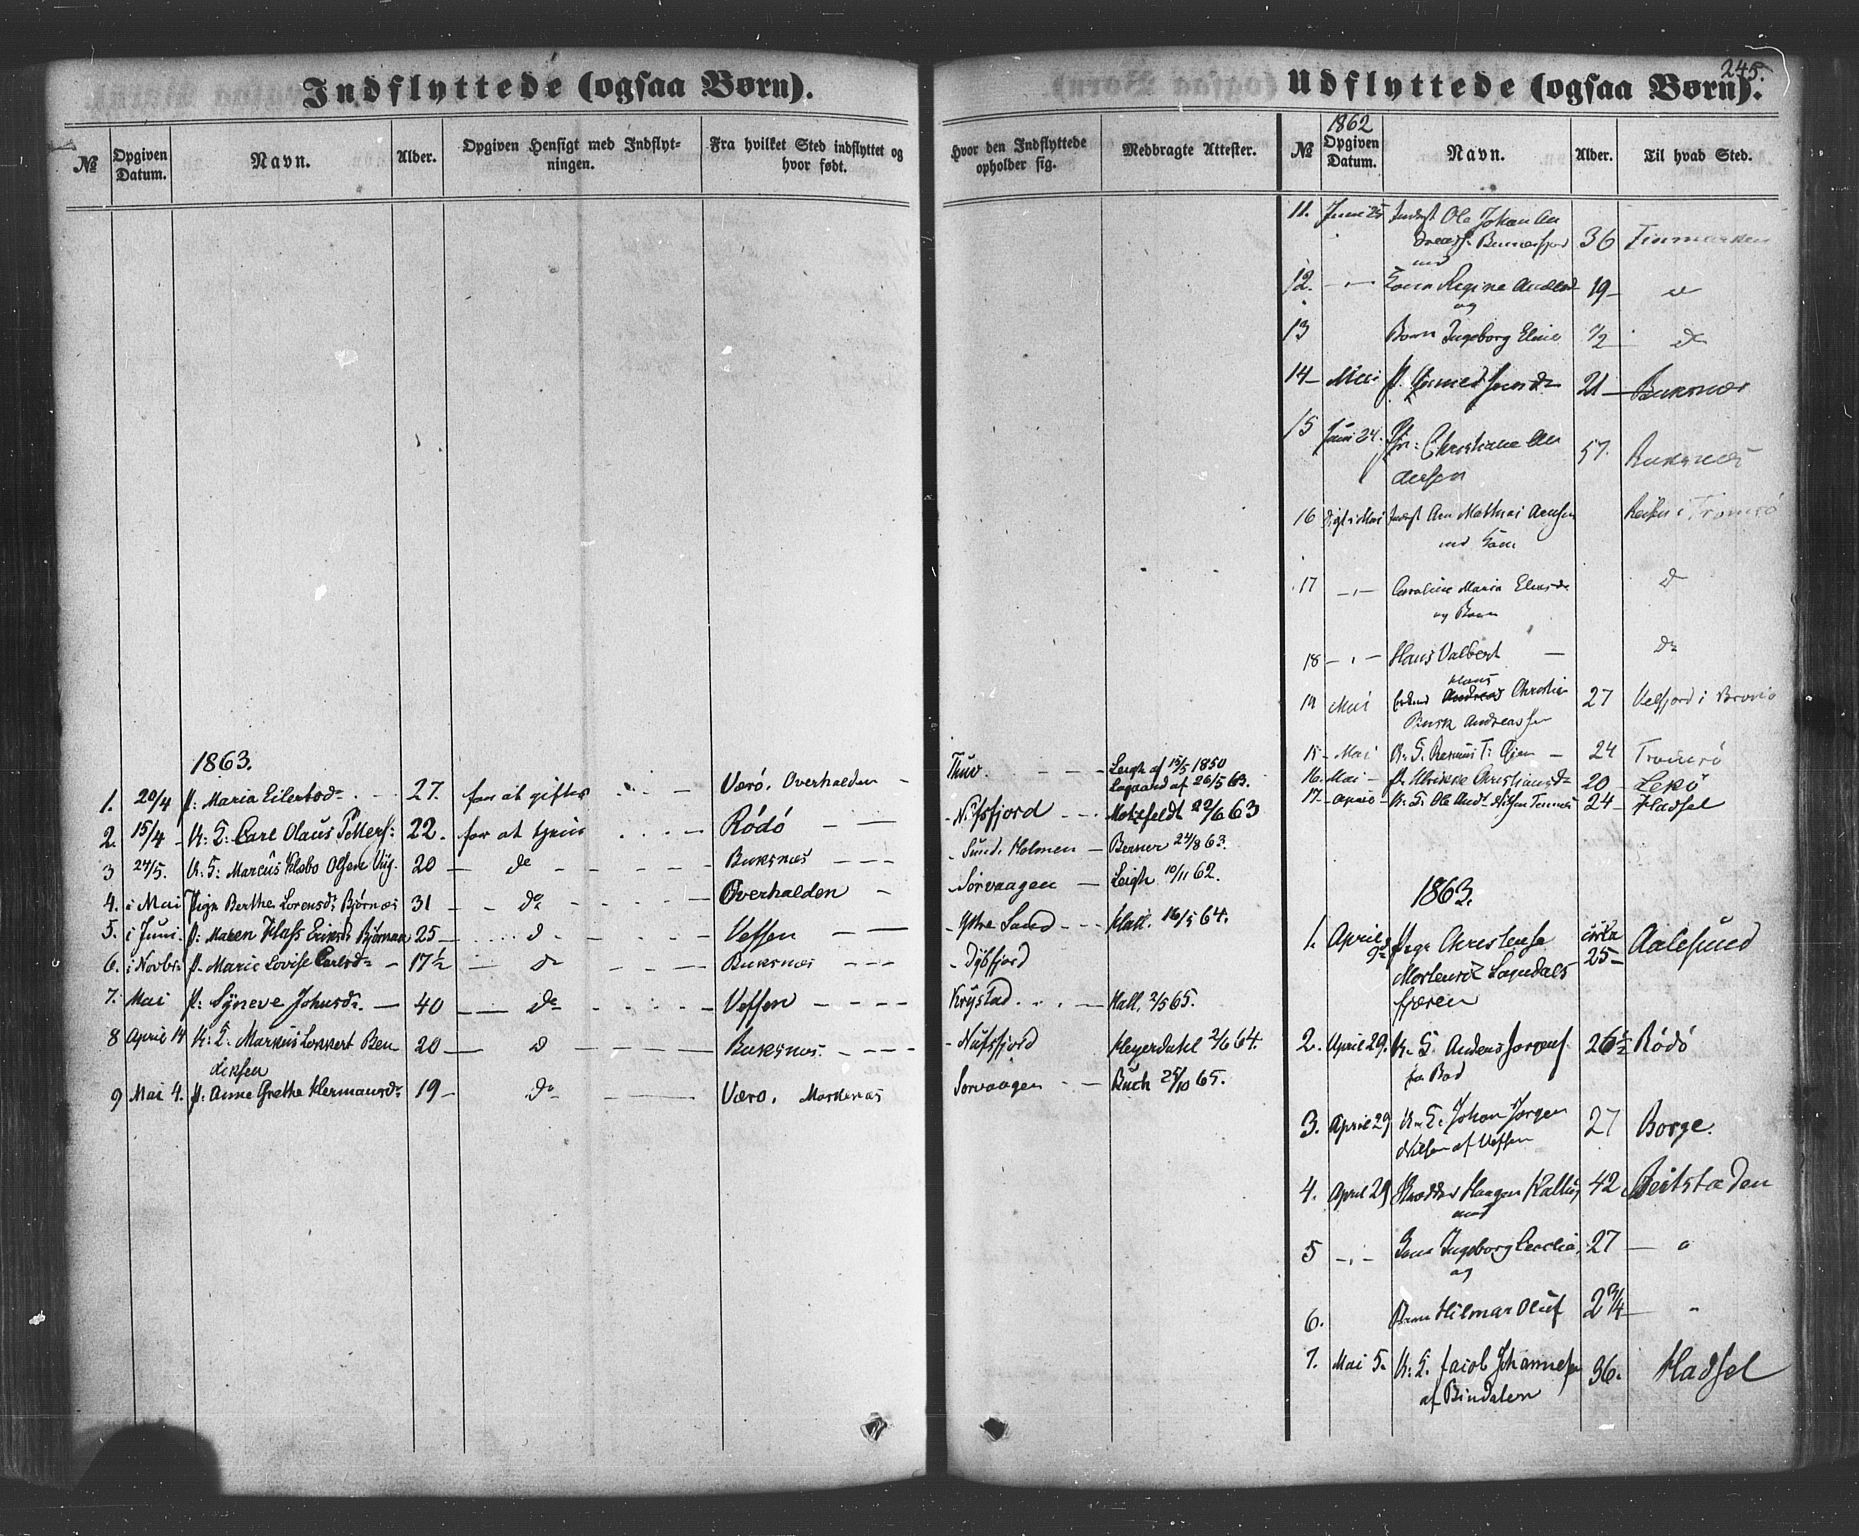 245.
Indflyttede (ogsaa Børn).
№ Opgiven Datum. Navn. Alder. Opgiven Hensigt med Indflytningen. Fra hvilket Sted indflyttet og hvor født. Hvor den Indflyttede opholder sig. Medbragte Attester.
1863.
1. 20/4 P: Maria Eilertsd. 27. for at giftes Værø. Overhalden Thuv. Leigh af 15/5 1850
Lagaard af 26/5 63.
2. 15/4 U: K: Carl Olaus Petters: 22. for at tjene Rödö Nufsfjord Motzfeldt 22/6 63
3 24/5. U: K: Marcus Olsen 20 do Buksnæs Sund. Holmen 24/8 63.
4. i Mai Pige Berthe Lorensdr Bjørnæs 31 do Overhalden Sørvaagen Leigh 10/11 62.
5. i Juni. P: Maren Eriksd: 25 d Vefsen Ytre Sand Hall. 16/5 64.
6. i Novbr P. Marie Lovise Carlsdr 17½ do Buksnæs Dybfjord
7. Mai P: Syneve Johnsdr 40 do Vefsen Krystad Hall. 2/5 65.
8 April 14 U: K. Markus Lokkert Ben
diksen 20 d Buksnæs. Nufsfjord Heyerdahl 2/6 64.
9 Mai 4. P. Anne Grethe Hermansdr 19 do Værø. Sørvaagen Buch 25/10 65.
Udflyttede (ogsaa Børn).
1862
№ Opgiven Datum. Navn. Alder. Til hvad Sted.
11. Juni 25 Inderst Ole Johan An
dreass: 36 Finmarken
med
12. Kone Regine 19
og
13 Barn Ingeborg Eline ½ do
14 Mai P. 21 Buksnæs
15 Juni 24. Christiane An
dersen 57. Buksnæs
16 Mai Inderst Mathias Arntsen Tromsö
med Kone
17 Caroline Maria Eliasdr d
og Barn
18 Hans Valbert do
Hans
19 Mai Andreas Christian
Andreassen 27 Velfjord i Brønö
15 Mai U. K. Rasmus 24 Tromsö
16. Mai P. Ulrikke Christiansdr 20 Lekö
17. U: K: Ole 24 Hadsel
1863.
1. April Pige Christense
Mortensdr Sagndals
fjæren cirka
25 Aalesund
2. April 29. U. K. Anders Jørgens:
fra Bod 26½ Rödö
3. April 29 U. K. Johan Jørgen
Nilsen af Vefsen 27 Borge.
4. April 29 Skrædder Haagen 42 Beitstaden
med
5 Kone Ingeborg Cecilia 27
og
6. Barn Hilmar Oluf 2¾
7. Mai 5. U: K. Jacob Johannesen
af Bindalen 36. Hadsel